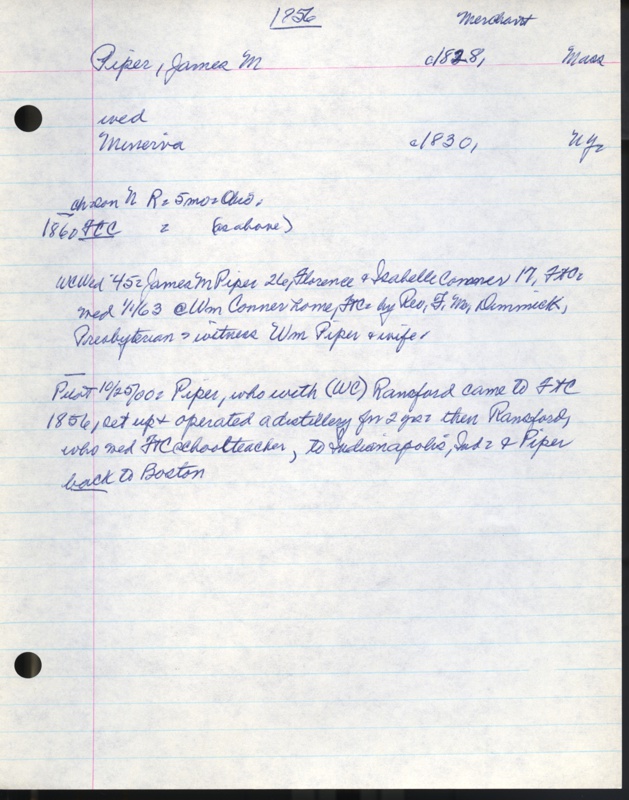 1856
Merchant
Piper, James M c1828, Mass
wed
Minerva c1830, NY
ch: son N R = 5mo = Ohio.
1860 FTC = (as above)
WCWed '45 = James M Piper 26, Florence & Isabelle Conner 17, FTC =
wed 1/1/63 @ Wm Conner home, FTC = by Rev. F. Wm. Dimmick,
Presbyterian = witness Wm Piper & wife.
Pilot 10/25/00 = Piper, who with (WC) Ransford came to FTC
1856, set up & operated a distillery for 2 yrs = then Ransford,
who wed FTC schoolteacher, to Indianapolis, Ind = & Piper
back to Boston